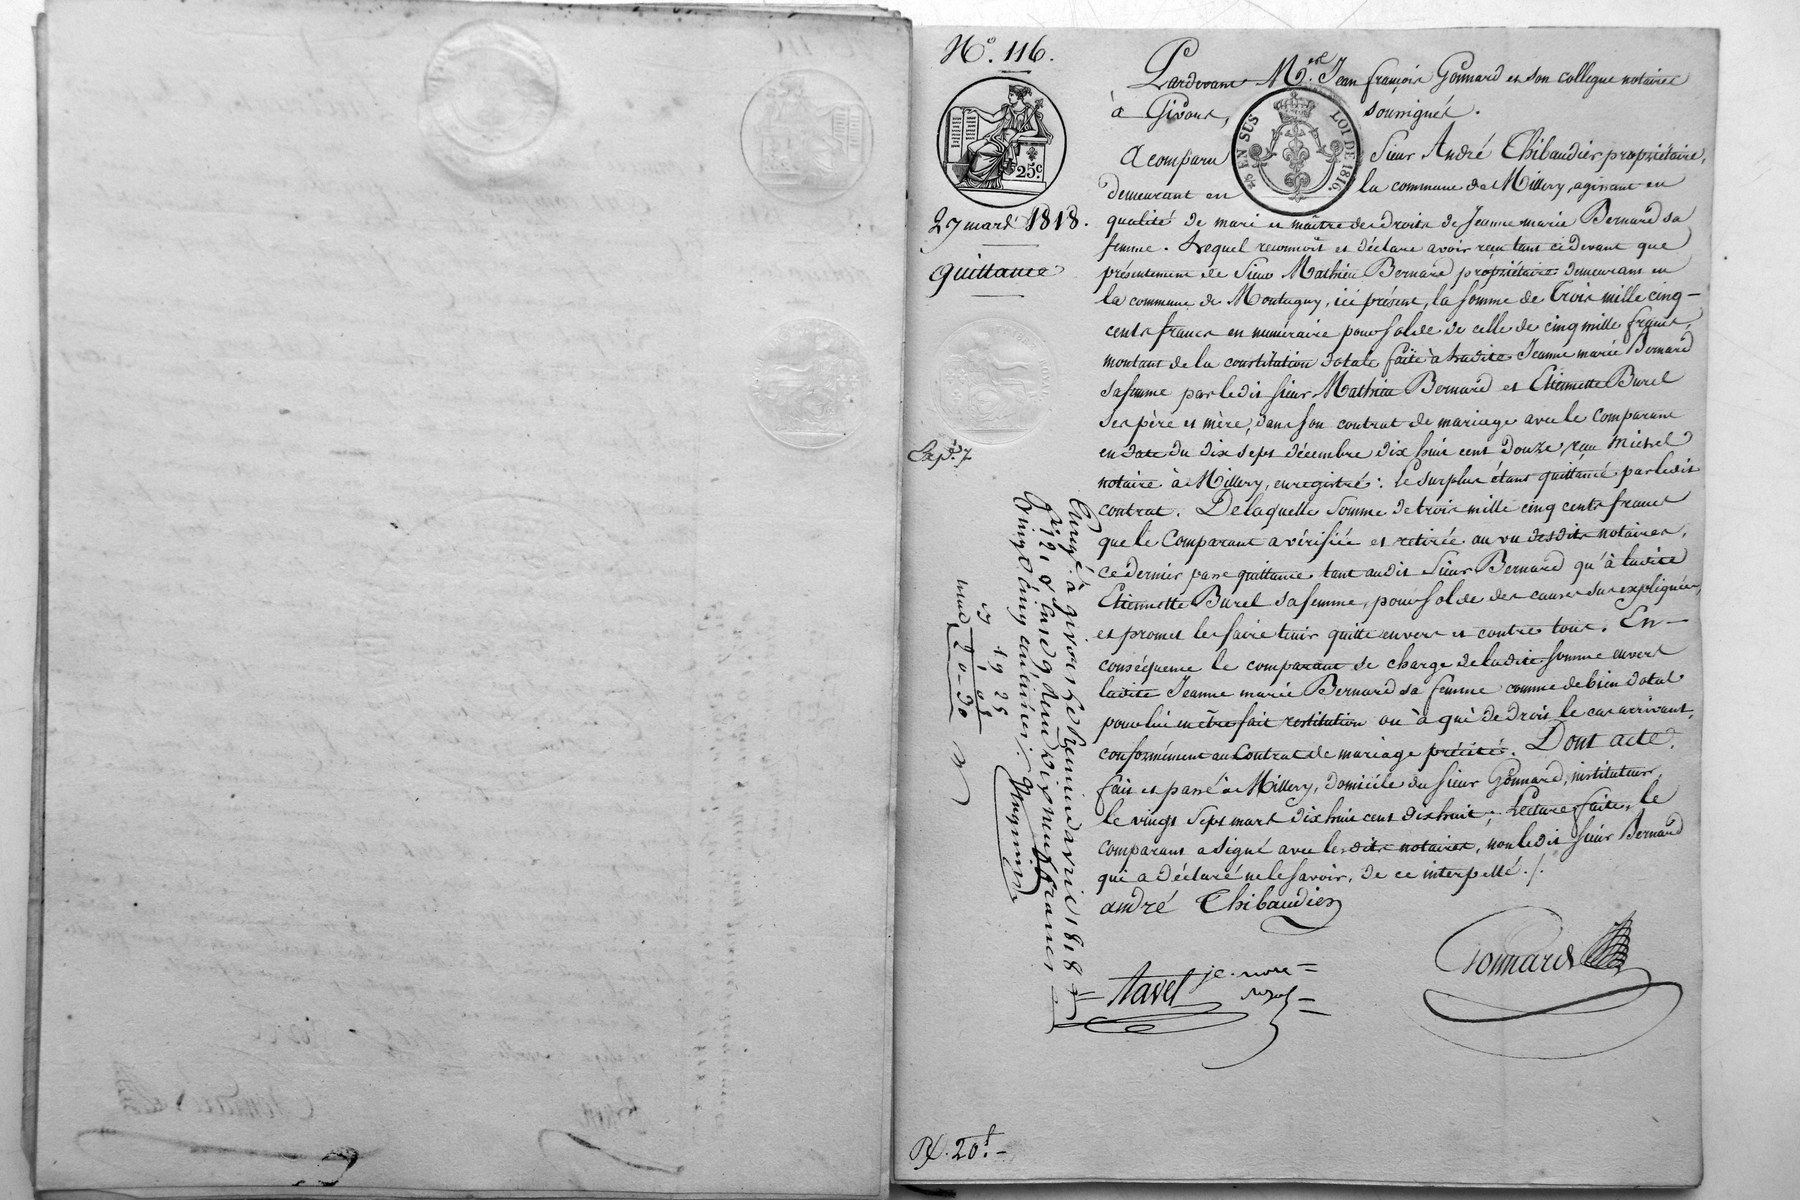 N.° 116.
25c.
27 mars 1818.
quittance
Exp.ée
Pardevant M.es Jean françois Gonnard et son collegue notaires
à Givors, soussignés.
25 EN SUS LOI DE 1816.
A comparu Sieur André Thibaudier, propriétaire,
demeurant en la commune de Millery, agissant en
qualité de mari et maître des droits de Jeanne marie Bernard sa
femme. Lequel reconnoit et déclare avoir reçu tant cidevant que
présentement de Sieur Mathieu Bernard propriétaire demeurant en
la commune de Montagny, ici présent, la somme de Trois mille cinq-
cents francs en numéraire pour solde de celle de cinq mille francs,
montant de la constitution dotale faite à ladite Jeanne marie Bernard
sa femme par ledit sieur Mathieu Bernard et Etiennette Burel
ses père et mère, dans son contrat de mariage avec le comparant
en date du dix sept décembre dix huit cent douze, reçu Michel
notaire à Millery, enregistré : le surplus étant quittancé par ledit
contrat. De laquelle somme de trois mille cinq cents francs
que le comparant a vérifiée et retirée au vu desdits notaires,
ce dernier passe quittance tant audit Sieur Bernard qu'à ladite
Etiennette Burel sa femme, pour solde des causes sus expliquées,
et promet les faire tenir quitte envers et contre tous. En-
conséquence le comparant se charge de ladite somme envers
ladite Jeanne marie Bernard sa femme comme de bien dotal
pour lui en être fait restitution ou à qui de droit le cas arrivant,
conformément au Contrat de mariage précité. Dont acte.
fait et passé à Millery, domicile du sieur Gonnard, instituteur,
le vingt sept mars dix huit cent dix huit ; Lecture faite, le
comparant a signé avec lesdits notaires, non ledit sieur Bernard
qui a déclaré ne le savoir, de ce interpellé ./.
andré Thibaudier
Gonnard
Tavel
Enreg.é à givors le Premier avril 1818
f.° 121 v.° Case 9, Reçu dix neuf francs
vingt cinq centimes ./.
19 25
20-30
Rf. 20f-